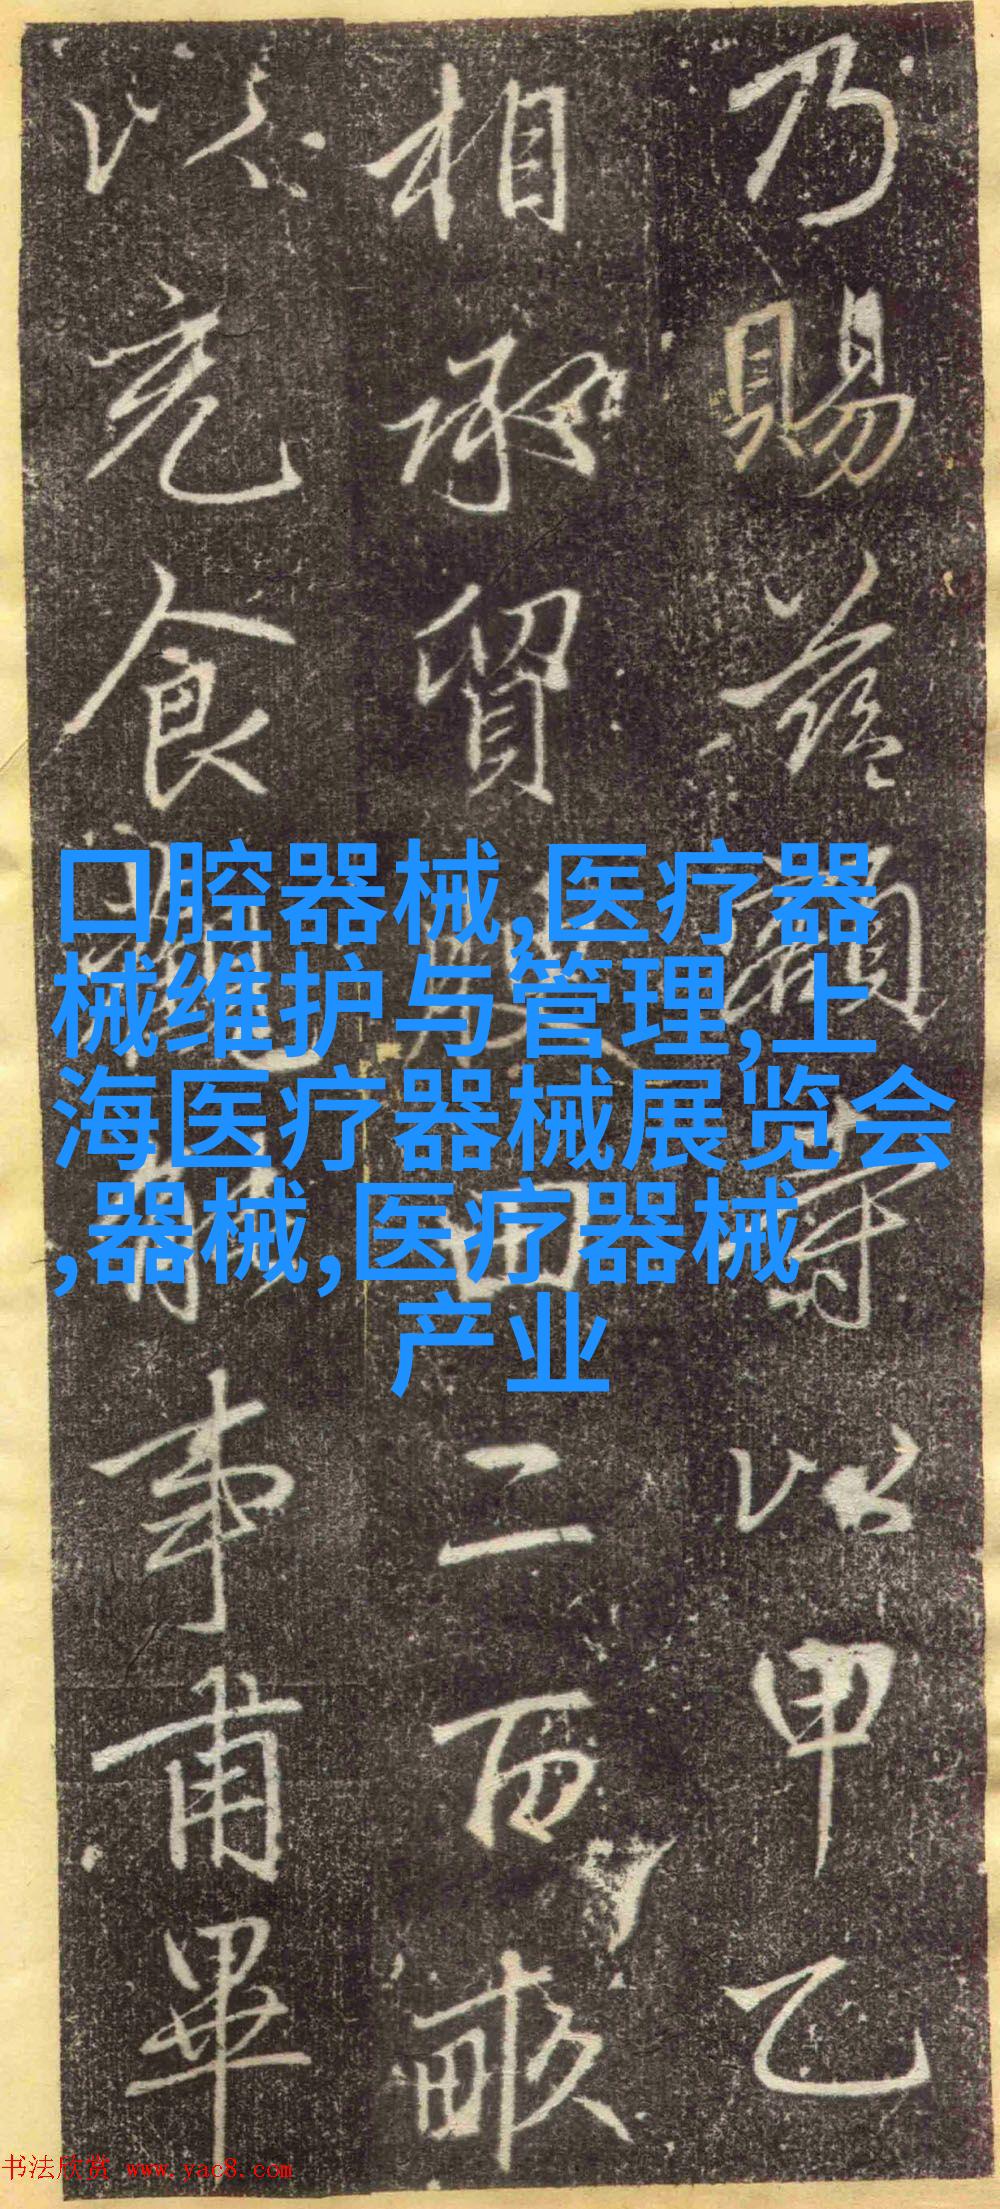 乃賜額寺以甲乙
相承貿田二百畝
以充食事甫畢
口腔器械,医疗器
械维护与管理,上
海医疗器械展览会
,器械,医疗器械
产业
书法欣赏 www.yac8.com